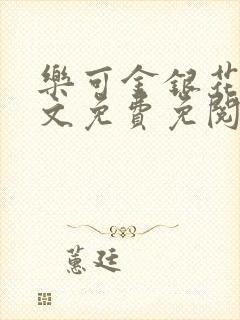 樂可金銀花
文免費免閱
蕙廷